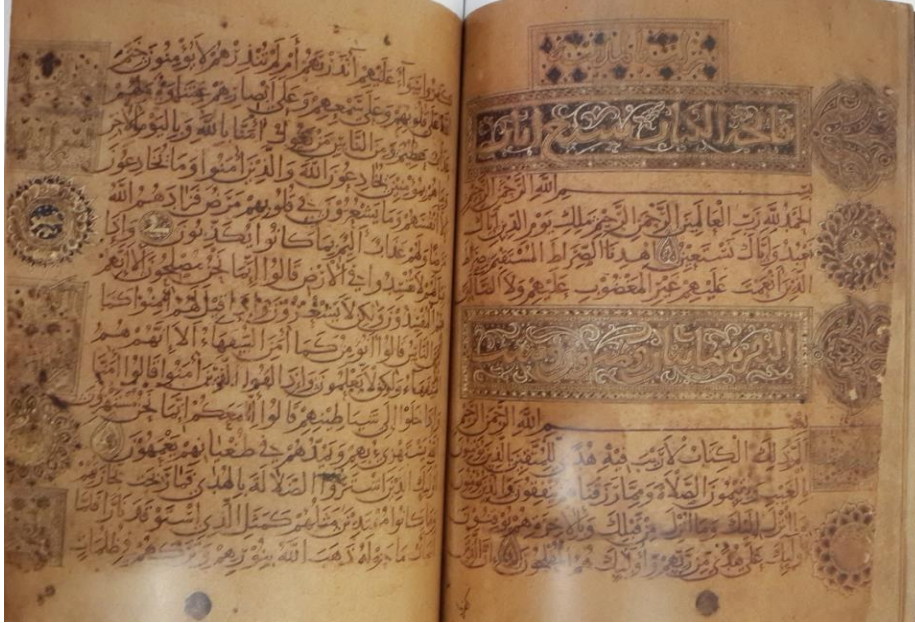 فاتحة الكتاب سبع ايات
بسم الله الرحمن الرحيم
الحمد لله رب العالمين الرحمن الرحيم ملك يوم الدين اياك
نعبد واياك نستعين اهدنا الصراط المستقيم صراط
الذين انعمت عليهم غير المغضوب عليهم ولا الضالين
البقرة مائتان
بسم الله الرحمن الرحيم
الم ذلك الكتاب لا ريب فيه هدى للمتقين الذين يؤمنون
بالغيب ويقيمون الصلاة ومما رزقناهم ينفقون والذين يؤمنون
بما انزل اليك وما انزل من قبلك وبالاخرة هم يوقنون
اولئك على هدى من ربهم واولئك هم المفلحون ان الذين
كفروا سواء عليهم أأنذرتهم أم لم تنذرهم لا يؤمنون ختم
الله على قلوبهم وعلى سمعهم وعلى ابصارهم غشاوة ولهم
عذاب عظيم ومن الناس من يقول امنا بالله وباليوم الاخر
وما هم بمؤمنين يخادعون الله والذين امنوا وما يخادعون
الا انفسهم وما يشعرون في قلوبهم مرض فزادهم الله
مرضا ولهم عذاب اليم بما كانوا يكذبون واذا
قيل لهم لا تفسدوا في الارض قالوا انما نحن مصلحون الا انهم
هم المفسدون ولكن لا يشعرون واذا قيل لهم امنوا كما
امن الناس قالوا انؤمن كما امن السفهاء الا انهم هم
السفهاء ولكن لا يعلمون واذا لقوا الذين امنوا قالوا امنا
واذا خلوا الى شياطينهم قالوا انا معكم انما نحن مستهزون
الله يستهزئ بهم ويمدهم في طغيانهم يعمهون
اولئك الذين اشتروا الضلالة بالهدى فما ربحت تجارتهم
وما كانوا مهتدين مثلهم كمثل الذي استوقد نارا فلما
اضاءت ما حوله ذهب الله بنورهم وتركهم في ظلمات